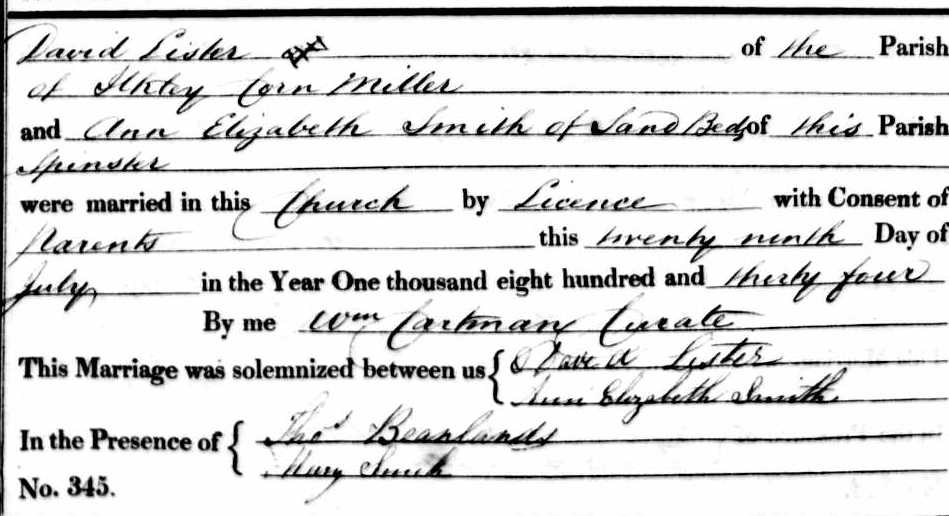 David Lister of the Parish
of Ilkley Corn Miller
and Ann Elizabeth Smith of Sand Beds of this Parish
Spinster
were married in this Church by Licence with Consent of
Parents this twenty ninth Day of
July in the Year One thousand eight hundred and thirty four
By me Wm Cartman Curate
This Marriage was solemnized between us { David Lister
Ann Elizabeth Smith
In the Presence of { Thos Beanlands
Mary Smith
No. 345.